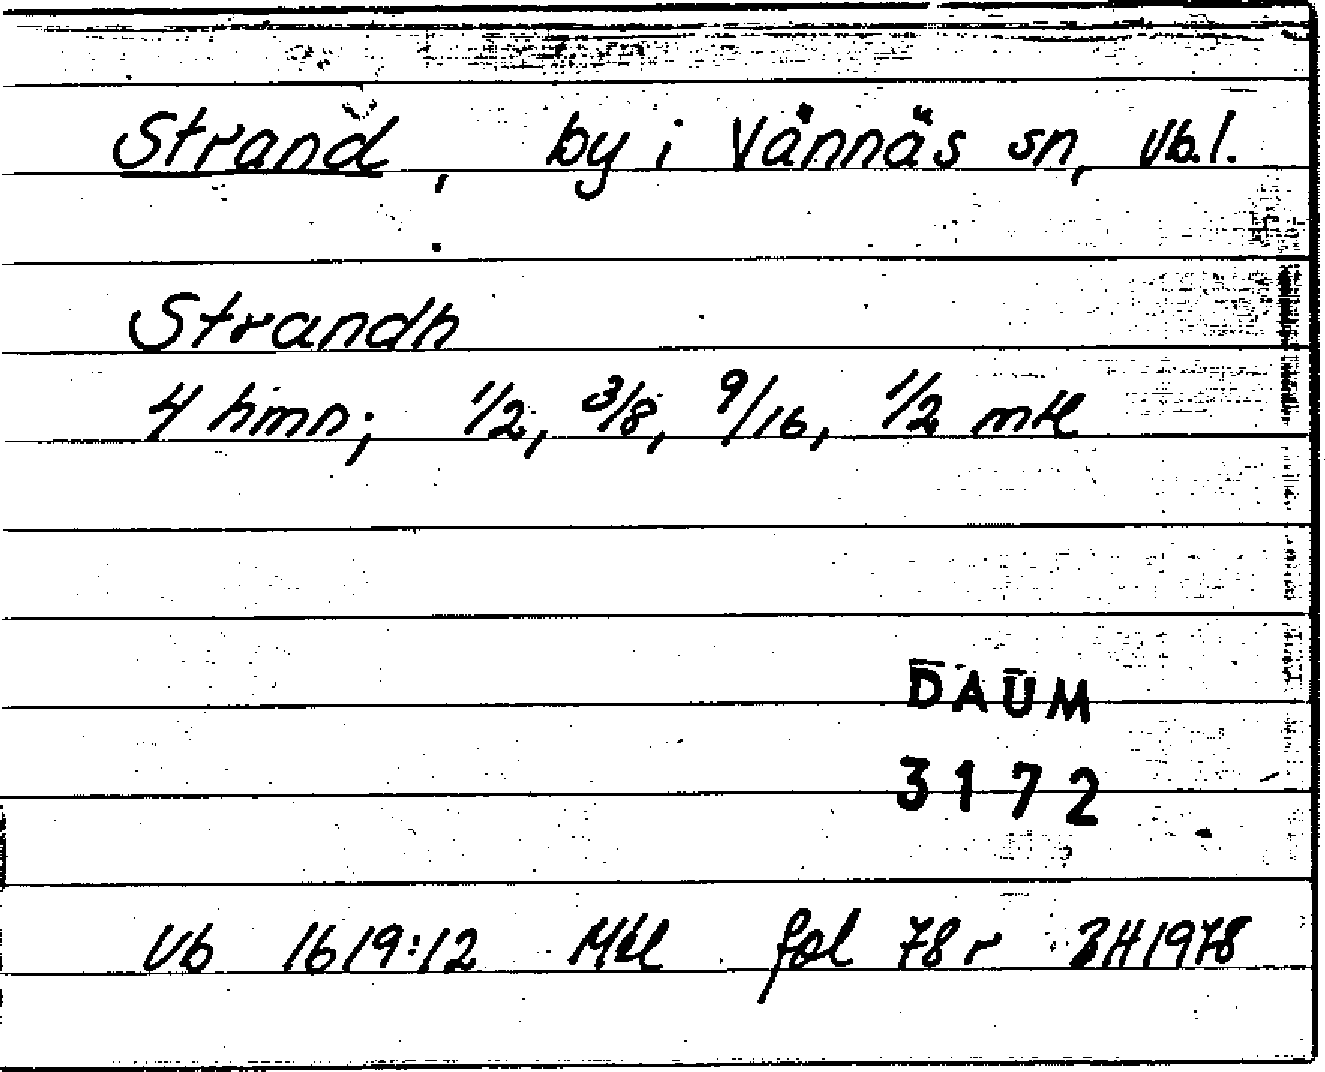 Strand, by i Vännäs sn, Vb.l.
Strandh
4 hmn; 1/2, 3/8, 9/16, 1/2 mtl
DAUM
3172
Vb 1619:12 Mtl fol 78 r BH1978